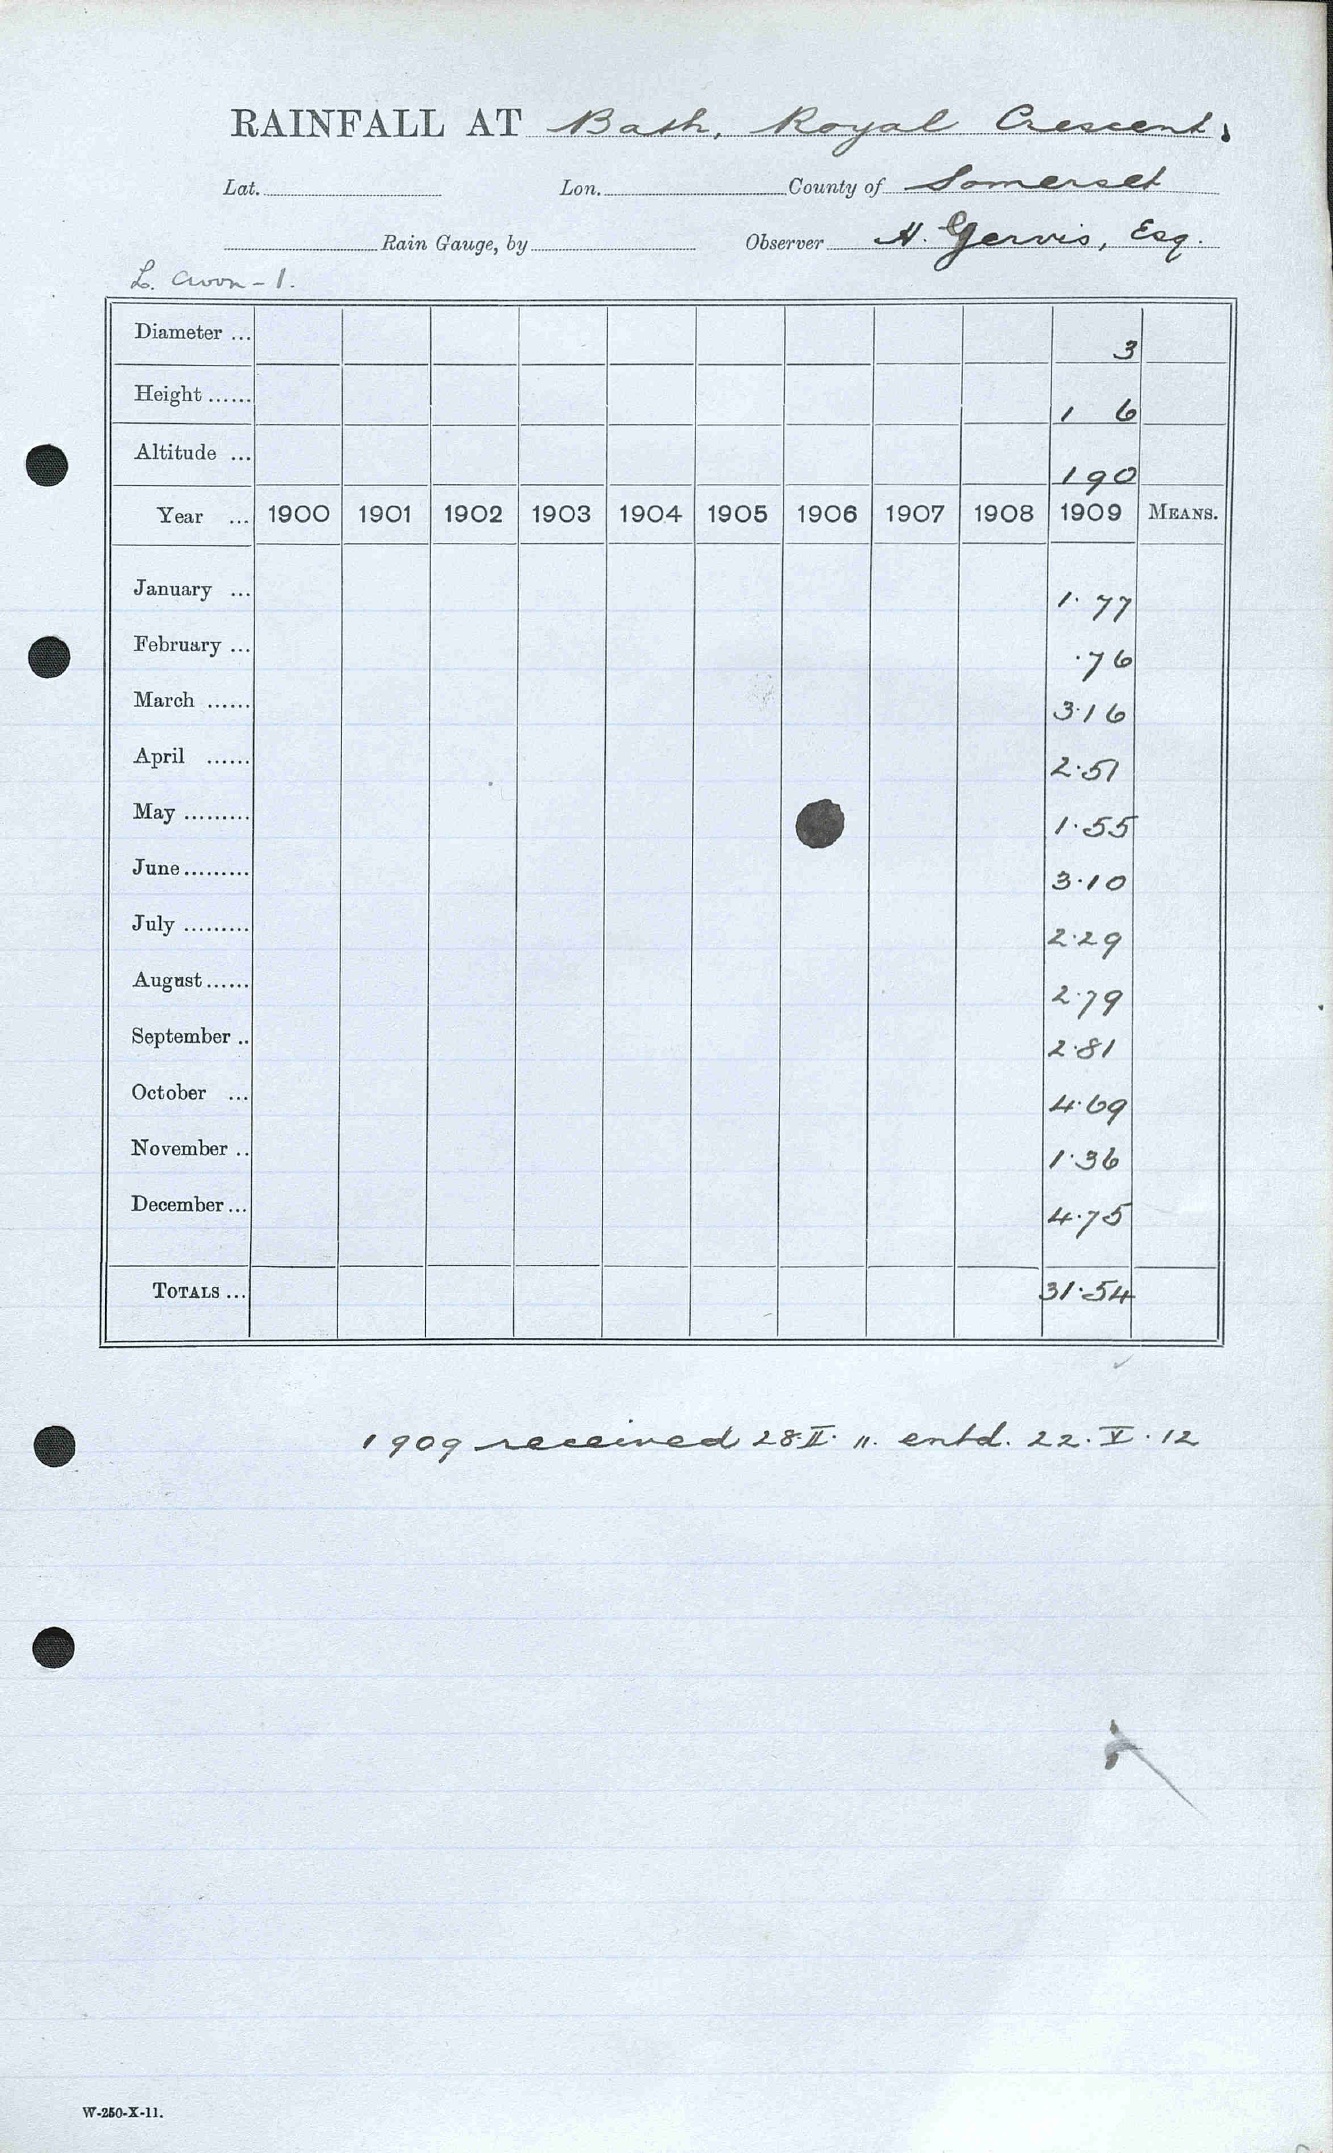 RAINFALL AT Bath, Royal Crescent,
Lat. Lon. County of Somerset
Rain Gauge, by Observer H. Gervis, Esq.
L. Avon - 1.
Diameter ... 3
Height ...... 1 6
Altitude ... 190
Year ... 1900 1901 1902 1903 1904 1905 1906 1907 1908 1909 MEANS.
January ... 1.77
February ... .76
March ...... 3.16
April ...... 2.51
May ......... 1.55
June ......... 3.10
July ......... 2.29
August ...... 2.79
September .. 2.81
October ... 4.69
November .. 1.36
December ... 4.75
TOTALS ... 31.54
1909 received 28.II. 11. entd. 22.V.12
W-250-X-11.